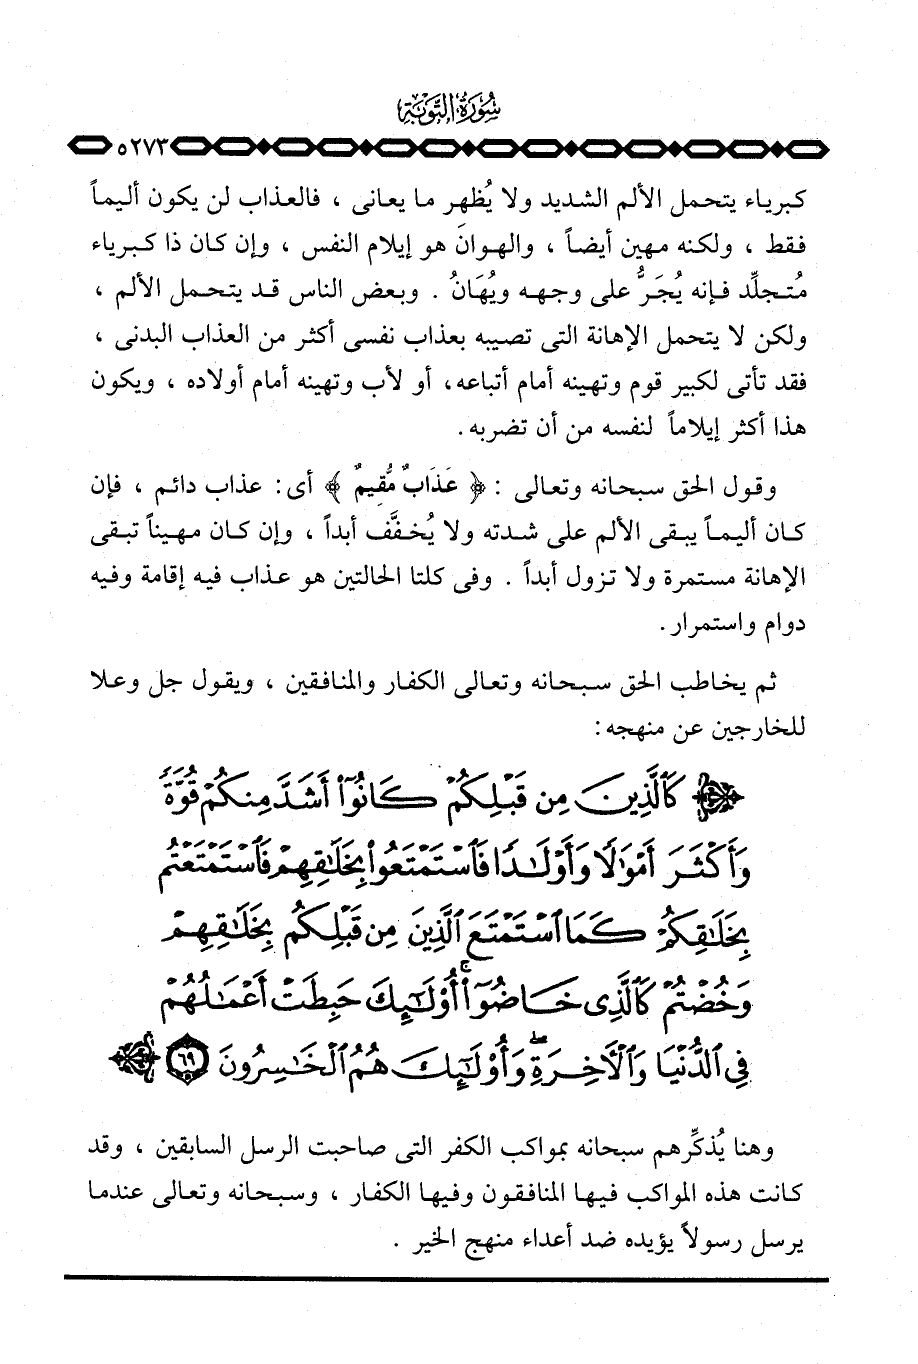 سُورَةُ التَّوبَةِ
٥٢٧٣
كبرياء يتحمل الألم الشديد ولا يُظهر ما يعانى ، فالعذاب لن يكون أليماً
فقط ، ولكنه مهين أيضاً ، والهوانَ هو إيلام النفس ، وإن كان ذا كبرياء
مُتجلِّد فإنه يُجَرُّ على وجهه ويُهَانُ . وبعض الناس قد يتحمل الألم ،
ولكن لا يتحمل الإهانة التى تصيبه بعذاب نفسى أكثر من العذاب البدنى ،
فقد تأتى لكبير قوم وتهينه أمام أتباعه، أو لأب وتهينه أمام أولاده ، ويكون
هذا أكثر إيلاماً لنفسه من أن تضربه.
وقول الحق سبحانه وتعالى : ﴿ عَذَابٌ مُّقِيمٌ ﴾ أى: عذاب دائم ، فإن
كان أليماً يبقى الألم على شدته ولا يُخفَّف أبداً ، وإن كان مهيناً تبقى
الإهانة مستمرة ولا تزول أبداً . وفى كلتا الحالتين هو عذاب فيه إقامة وفيه
دوام واستمرار.
ثم يخاطب الحق سبحانه وتعالى الكفار والمنافقين ، ويقول جل وعلا
للخارجين عن منهجه:
﴿ كَٱلَّذِينَ مِن قَبۡلِكُمۡ كَانُوٓاْ أَشَدَّ مِنكُمۡ قُوَّةً
وَأَكۡثَرَ أَمۡوَٰلًا وَأَوۡلَٰدًا فَٱسۡتَمۡتَعُواْ بِخَلَٰقِهِمۡ فَٱسۡتَمۡتَعۡتُم
بِخَلَٰقِكُمۡ كَمَا ٱسۡتَمۡتَعَ ٱلَّذِينَ مِن قَبۡلِكُم بِخَلَٰقِهِمۡ
وَخُضۡتُمۡ كَٱلَّذِى خَاضُوٓاْۚ أُوْلَٰٓئِكَ حَبِطَتۡ أَعۡمَٰلُهُمۡ
فِى ٱلدُّنۡيَا وَٱلۡأَخِرَةِۖ وَأُوْلَٰٓئِكَ هُمُ ٱلۡخَٰسِرُونَ ٦٩ ﴾
وهنا يُذكِّرهم سبحانه بمواكب الكفر التى صاحبت الرسل السابقين ، وقد
كانت هذه المواكب فيها المنافقون وفيها الكفار ، وسبحانه وتعالى عندما
يرسل رسولاً يؤيده ضد أعداء منهج الخير .